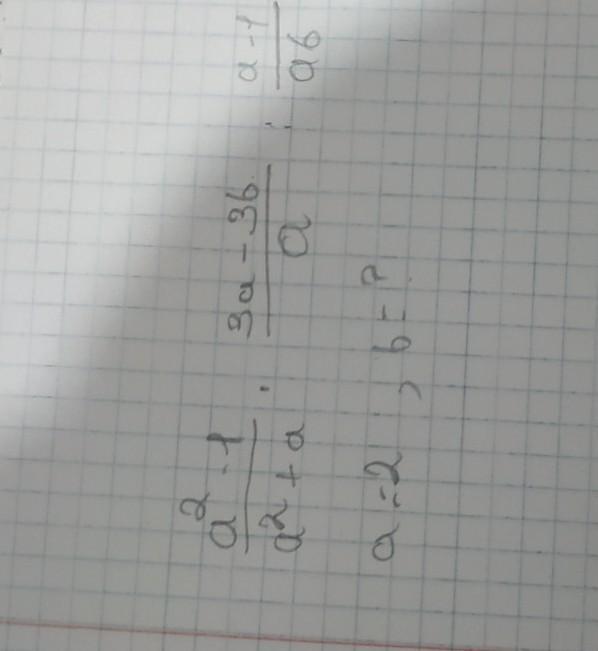 a² - 1 / a² + a · 3a - 3b / a : a - 1 / ab
a = 2, b = ?